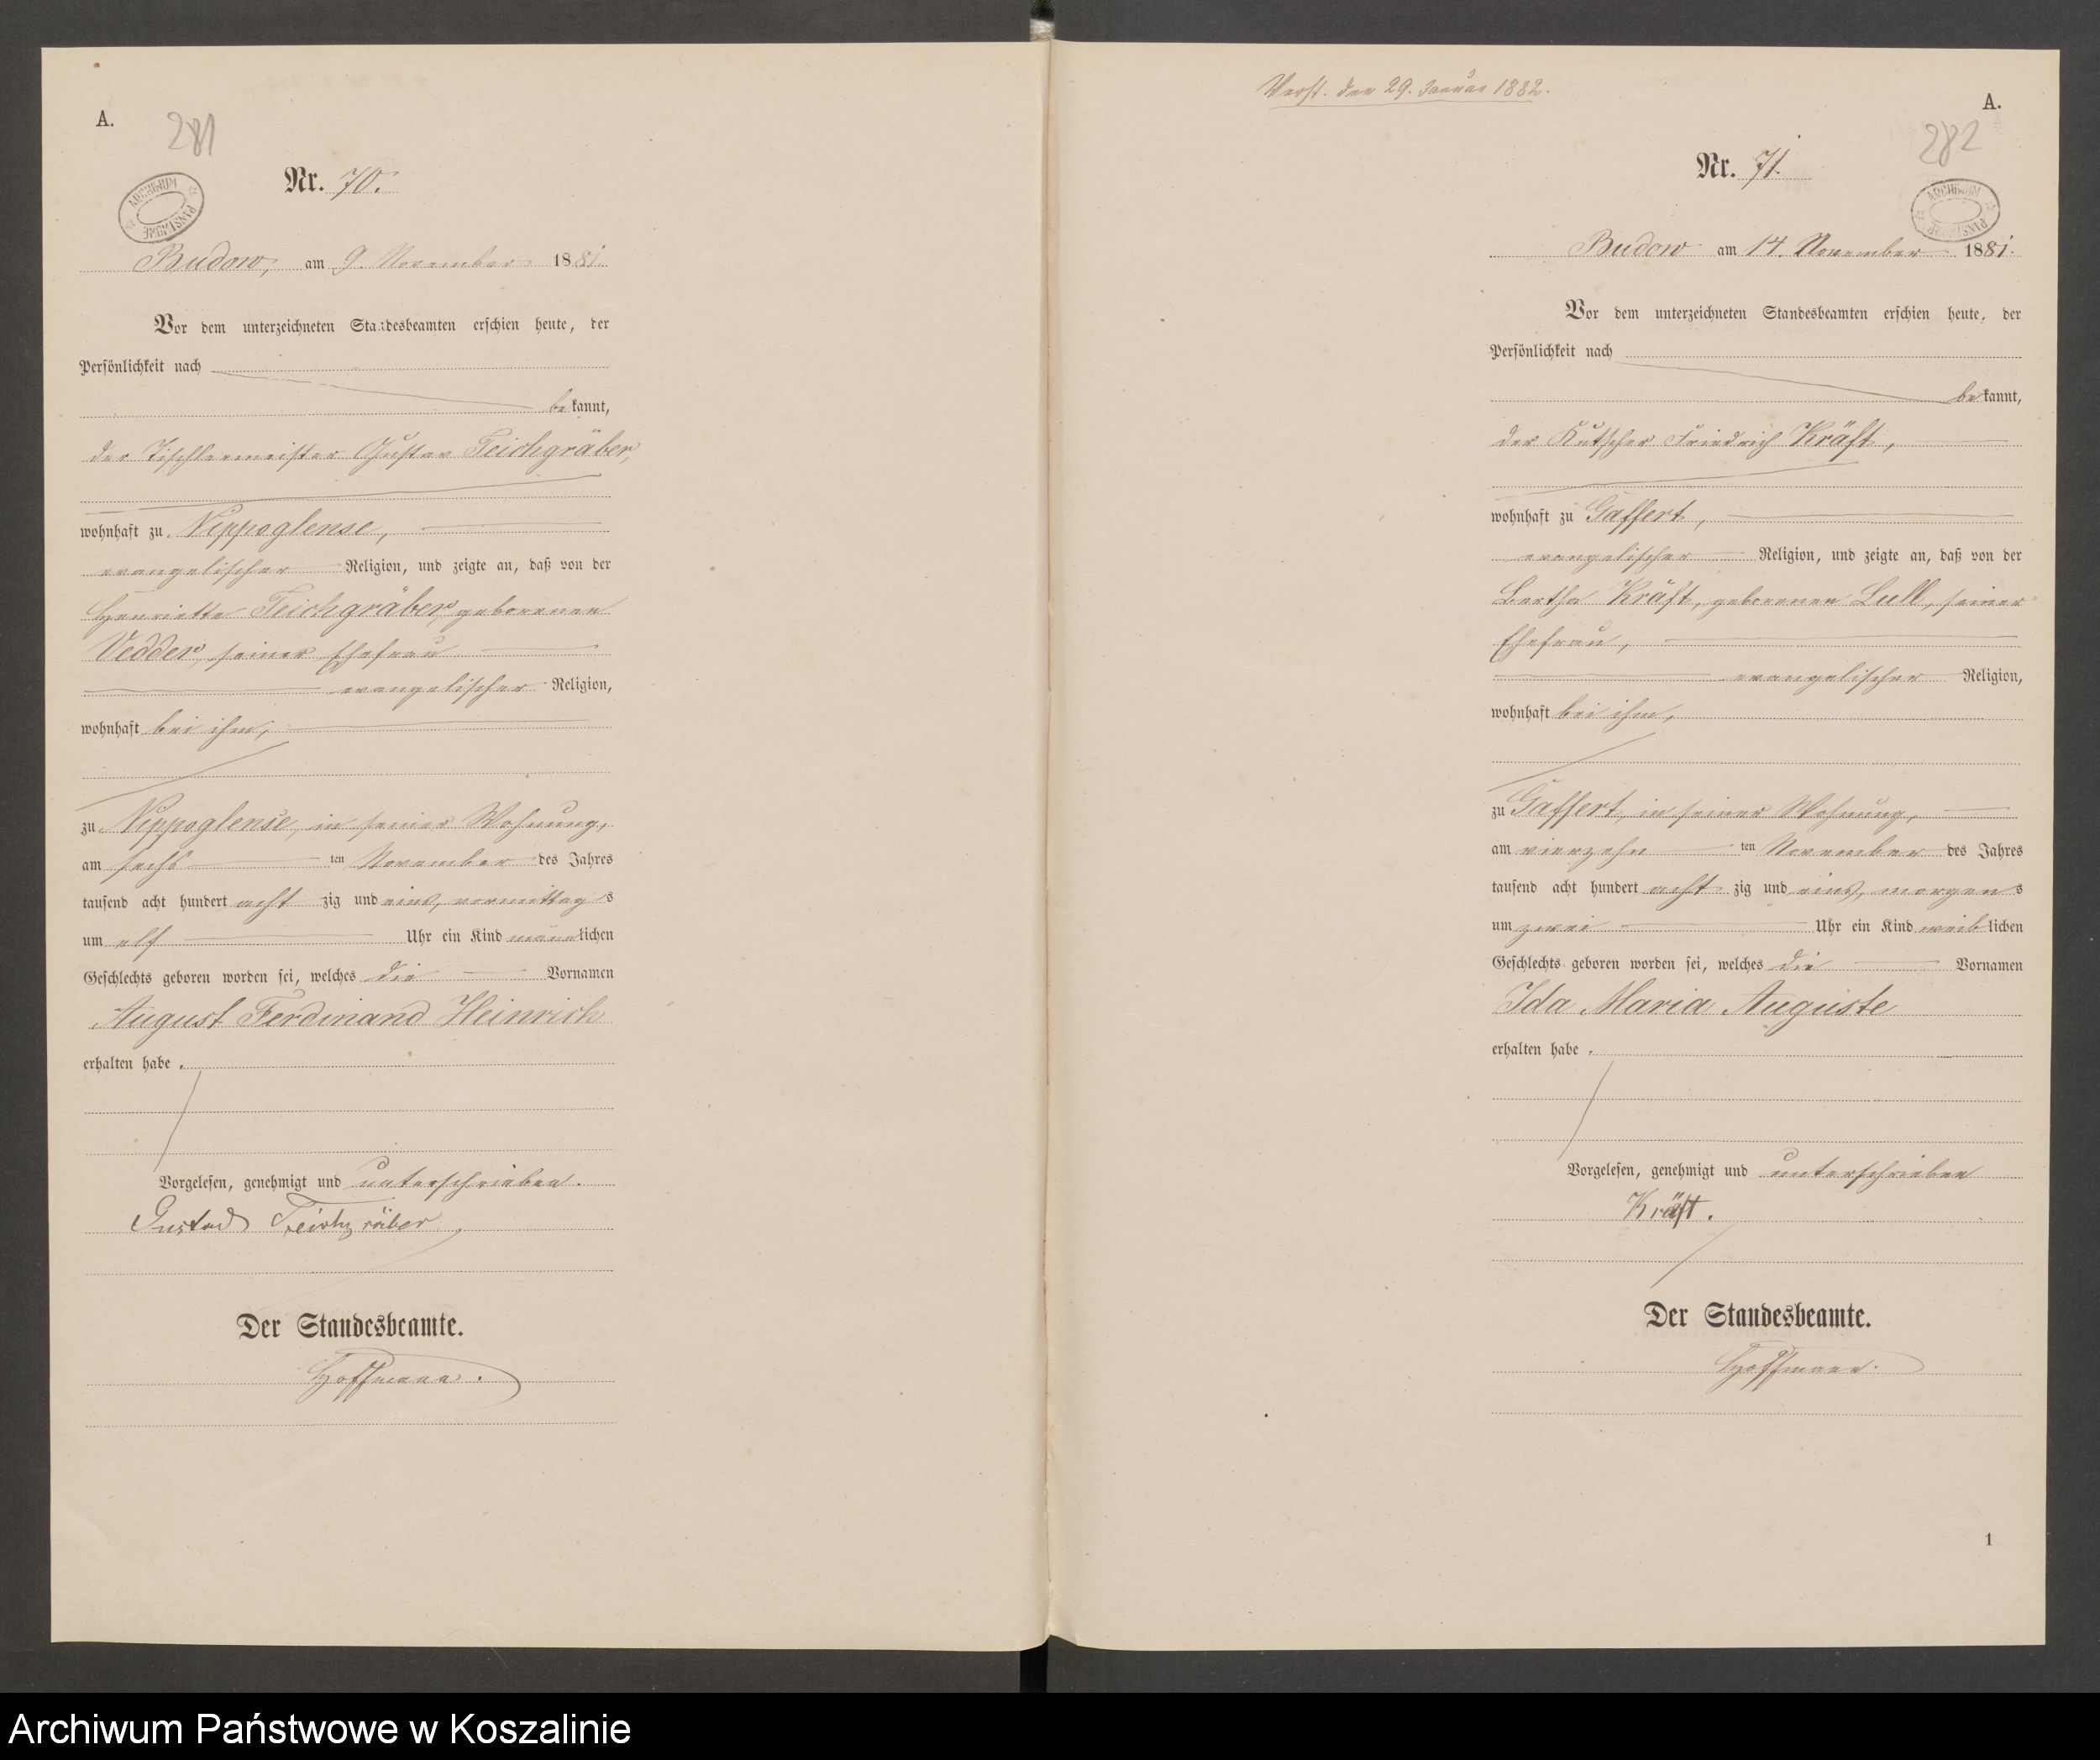 A.
281
Nr. 70.
ARCHIWUM PAŃSTWOWE
Budow, am 9. November 1881.
Vor dem unterzeichneten Standesbeamten erschien heute, der
Persönlichkeit nach
bekannt,
der Tischlermeister Gustav Teichgräber,
wohnhaft zu Nippoglense,
evangelischer Religion, und zeigte an, daß von der
Henriette Teichgräber, geborenen
Vedder, seiner Ehefrau
evangelischer Religion,
wohnhaft bei ihm,
zu Nippoglense, in seiner Wohnung,
am sechsten November des Jahres
tausend acht hundert achtzig und eins, vormittags
um elf Uhr ein Kind männlichen
Geschlechts geboren worden sei, welches die Vornamen
August Ferdinand Heinrich
erhalten habe.
Vorgelesen, genehmigt und unterschrieben.
Gustav Teichgräber
Der Standesbeamte.
Hoffmann.
Verst. den 29. Januar 1882.
A.
282
Nr. 71.
ARCHIWUM PAŃSTWOWE
Budow am 14. November 1881.
Vor dem unterzeichneten Standesbeamten erschien heute, der
Persönlichkeit nach
bekannt,
der Kutscher Friedrich Kräft,
wohnhaft zu Gaffert,
evangelischer Religion, und zeigte an, daß von der
Bertha Kräft, geborenen Lull, seiner
Ehefrau,
evangelischer Religion,
wohnhaft bei ihm,
zu Gaffert, in seiner Wohnung,
am vierzehnten November des Jahres
tausend acht hundert achtzig und eins, morgens
um zwei Uhr ein Kind weiblichen
Geschlechts geboren worden sei, welches die Vornamen
Ida Maria Auguste
erhalten habe.
Vorgelesen, genehmigt und unterschrieben
Kräft.
Der Standesbeamte.
Hoffmann.
1
Archiwum Państwowe w Koszalinie